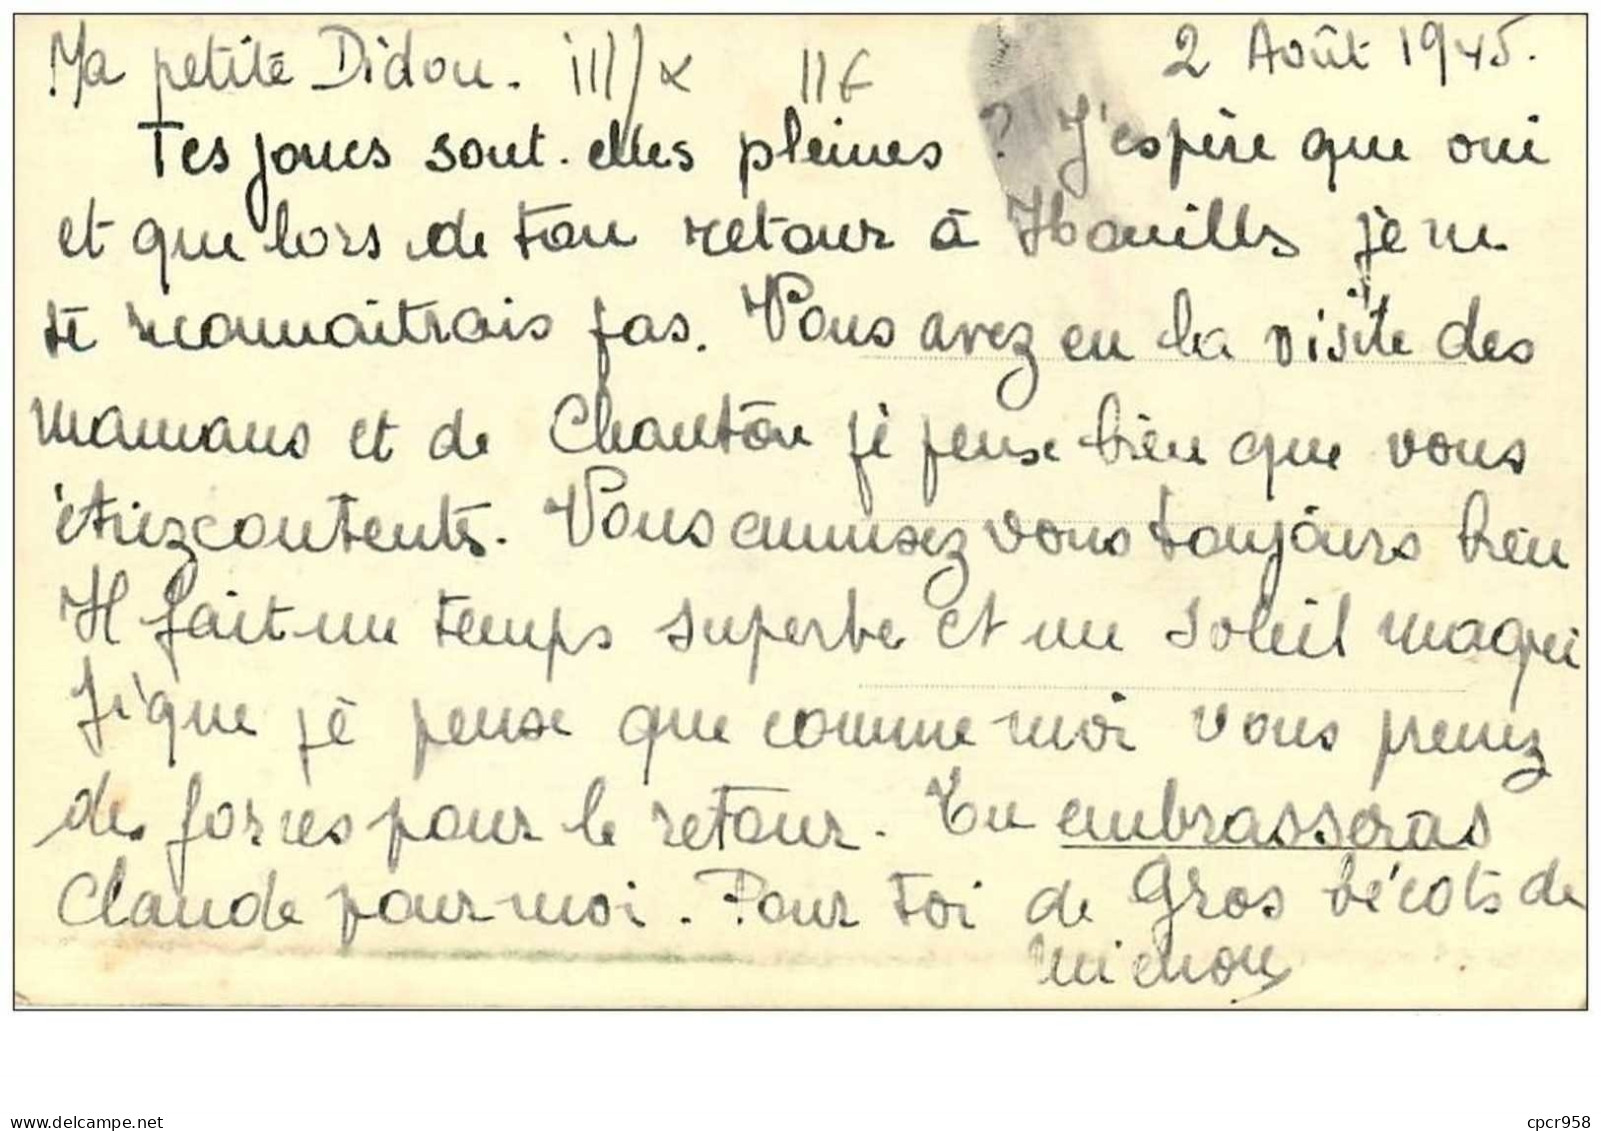 Ma petite Didou. 2 Août 1945.
Tes joues sont-elles pleines ? J'espère que oui
et que lors de ton retour à Houilles je ne
te reconnaitrais pas. Vous avez eu la visite des
mamans et de Chanton je pense bien que vous
étiez contents. Vous amusez vous toujours bien
Il fait un temps superbe et un soleil magni
fique je pense que comme moi vous prenez
des forces pour le retour. Tu embrasseras
Claude pour moi. Pour toi de Gros bécots de
Michou
cpcr958